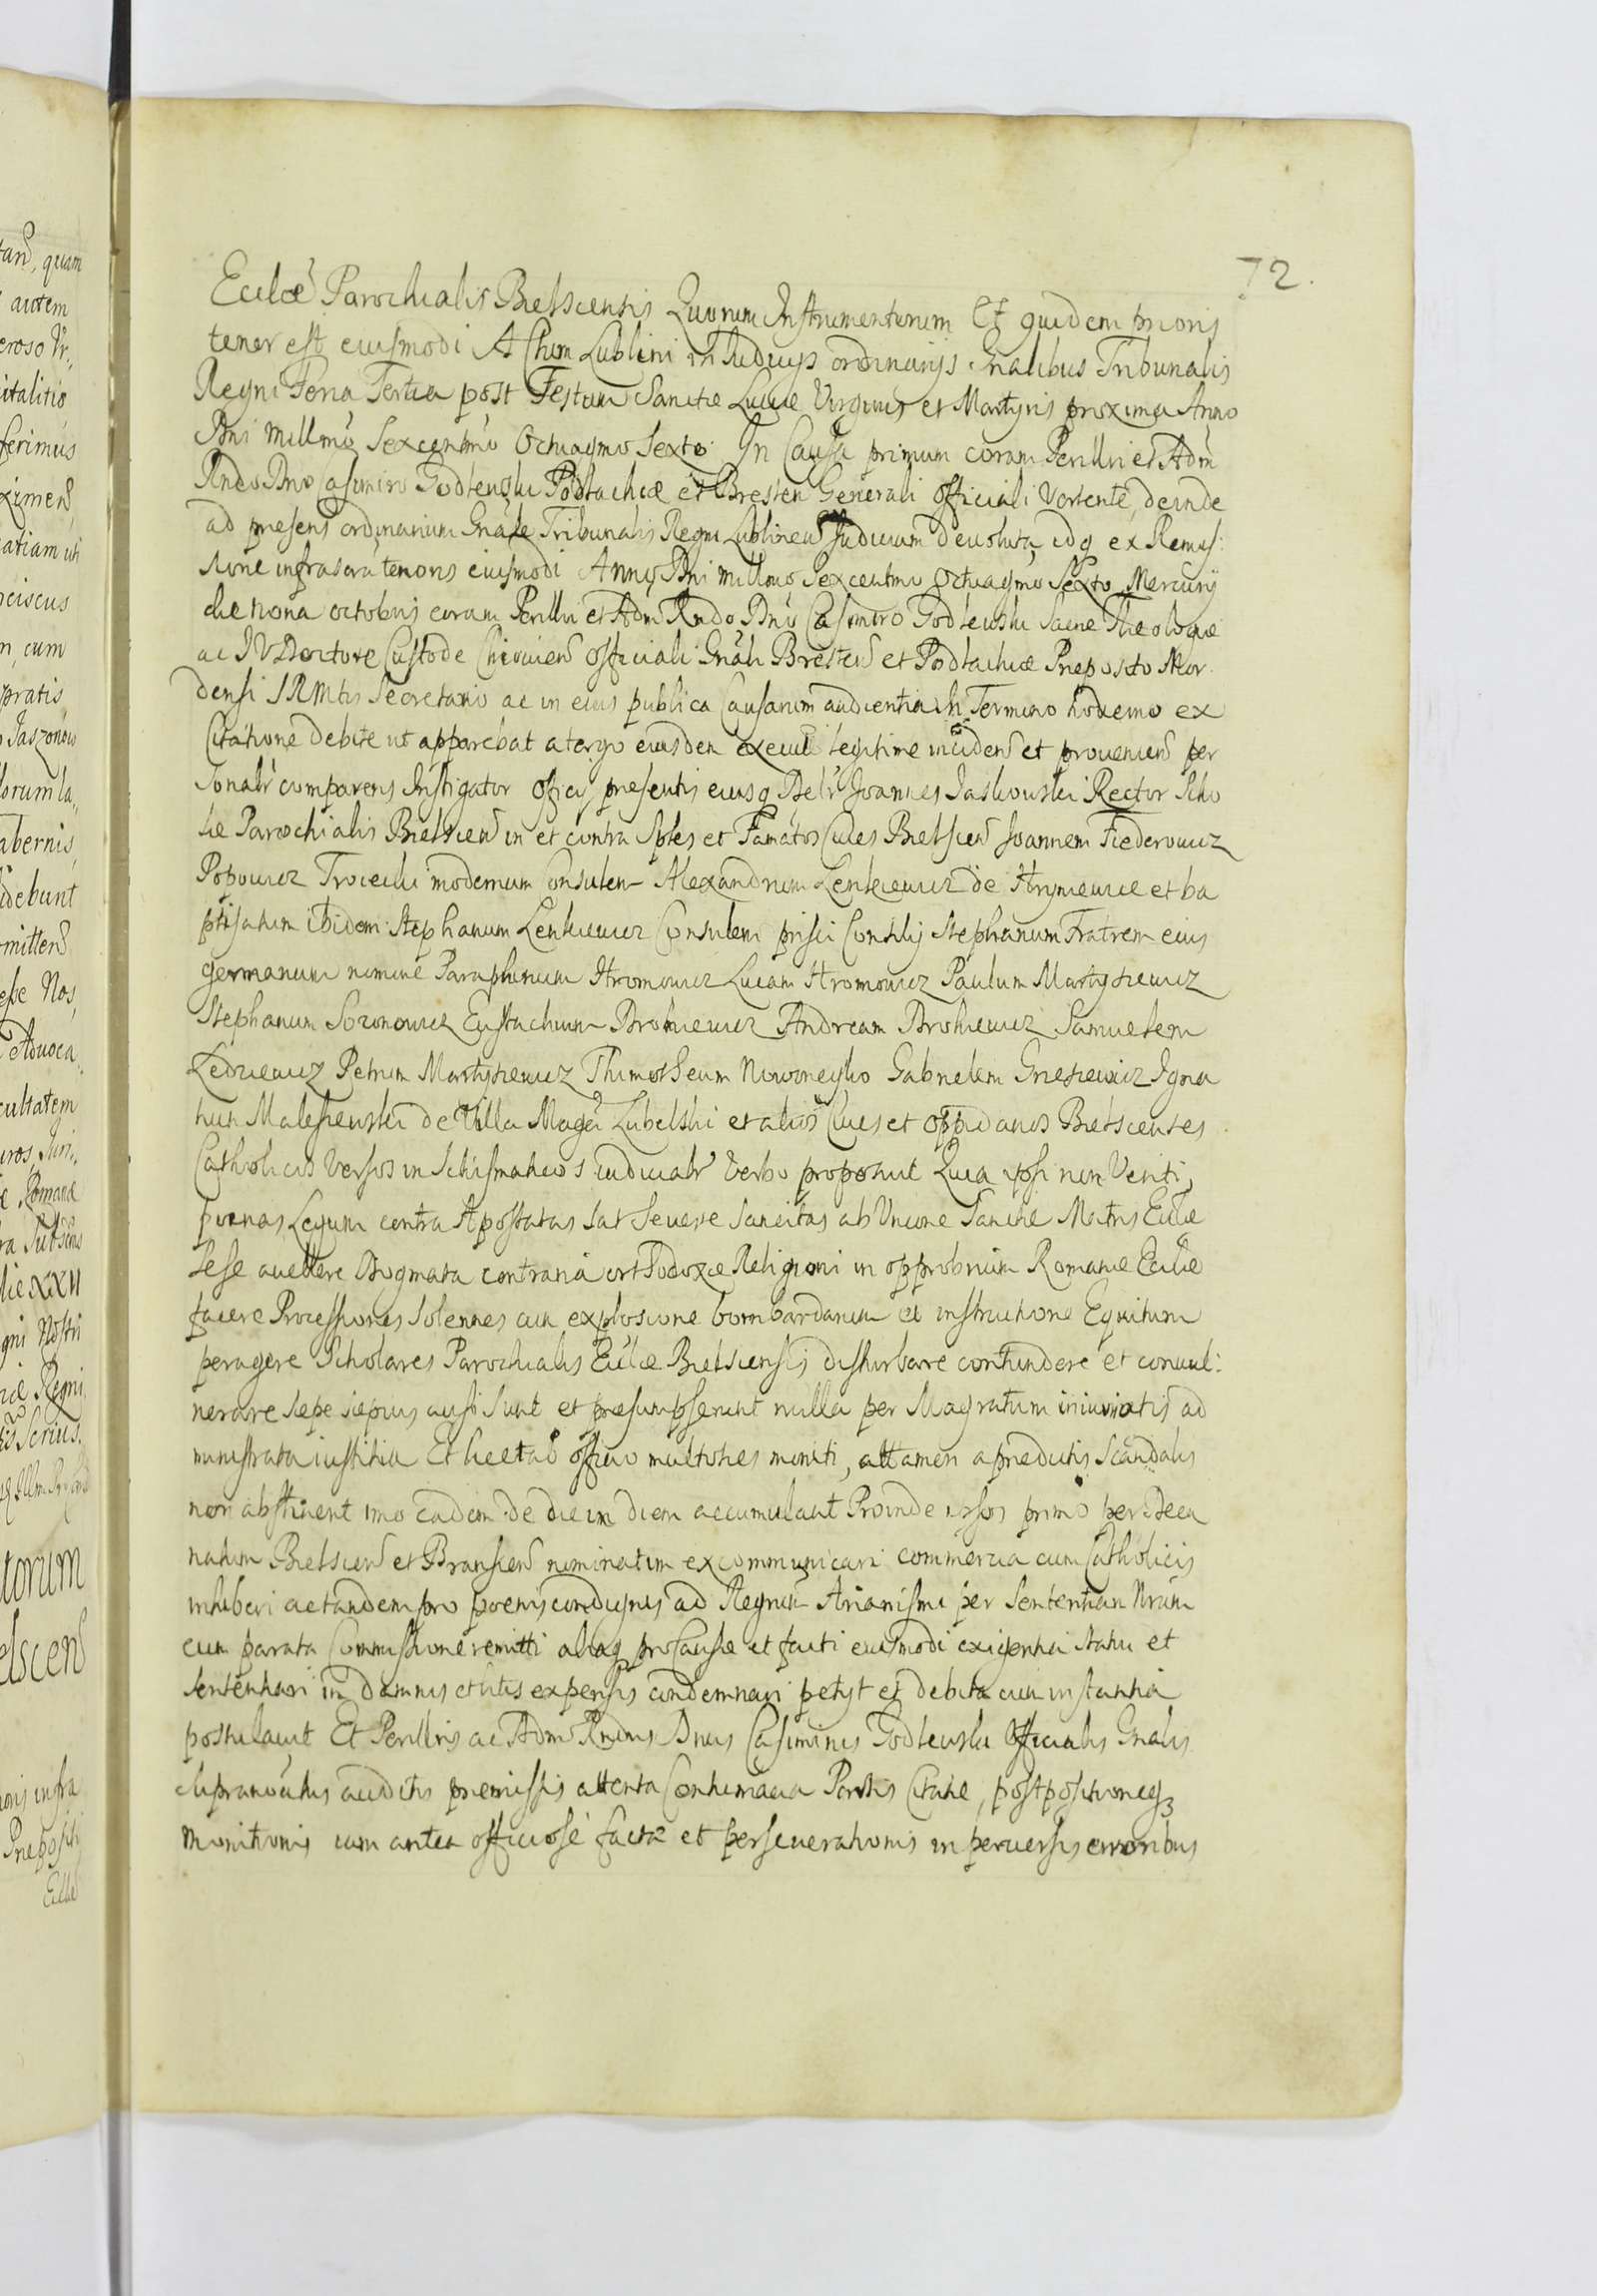 72.
Ecclae Parochialis Bielscensis Quorum Instrumentorum Et quidem prioris
tenor est eiusmodi Actum Lublini in Iudicijs ordinarijs Gnalibus Tribunalis
Regni Feria Tertia post Festum Sanctae Luciae Virginis et Martyris proxima Anno
Dni Millmo Sexcentmo Octuagmo Sexto. In Causa primum coram Perillri et Adm
Rndo Dno Casimiro Godlewski Podlachiae et Bresten Generali Officiali Vertente, deinde
ad presens ordinarium Gnale Tribunalis Regni Lublinen Iudicium devoluta idq ex Remis:
sione infrascra tenoris eiusmodi Anno Dni Millmo Sexcentmo Octuagmo Sexto Mercurij
die nona octobris coram Perillri et Adm Rndo Dno Casimiro Godlewski Sacrae Theologiae
ac IV Doctore Custode Chiovien officiali Gnali Bresten et Podlachiae Preposito Mor
densi SRMtis Secretario ac in eius publica Causarum audientia In Termino hodierno ex
Citatione debite ut apparebat a tergo eiusdem execut legitime inciden et provenien per
sonalr comparens Instigator officij presentis eiusq Delr Joannes Jaskowski Rector Scho
lae Parochialis Bielscen in et contra Sples et Famatos Cives Bielscen Joannem Fiederowicz
Popowicz Trocecki modernum Consulem Alexandrum Lenkiewicz de Hryniewicze et ba
ptisatum ibidem Stephanum Lenkiewicz Consulem prisci Consilij Stephanum Fratrem eius
germanum nomine Paraphinum Hromowicz Lucam Hromowicz Paulum Martysiewicz
Stephanum Sozonowicz Eustachium Brokiewicz Andream Brokiewicz Samuelem
Ledziewicz Petrum Martysiewicz Thimotheum Nowoneysko Gabrielem Griesiewicz Igna
tium Malesiewski de Villa Maga Lubelski et alios Cives et oppidanos Bielscenses
Catholicos Versos in Schismaticos iudicialr Verbo proposuit Quia ipsi non Veriti,
poenas Legum contra Apostatas sat severe sancitas ab Unione Sanctae Matris Ecclae
sese avellere Dogmata contraria orthodoxae Religioni in opprobrium Romanae Ecclae
facere Processiones solennes cum explosione bombardarum et instructione Equitum
peragere Scholares Parochialis Ecclae Bielscensis disturbare contundere et convul:
nerare saepe saepius ausi sunt et praesumpserunt nulla per Magratum iniuriatis ad
ministrata iustitia Et licet ab officio multoties moniti, attamen a predictis Scandalis
non abstinent imo eadem de die in diem accumulant Proinde ipsos primo per Deca
natum Bielscen et Bransicen nominatim excommunicari commercia cum Catholicis
inhiberi ac tandem pro poenis condignis ad Regnum Arianismi per Sententiam Nram
cum parata Commissione remitti aliaq pro Causae et facti eiusmodi exigentia statui et
sententiari in damnis et litis expensis condemnari petijt et debita cum instantia
postulavit Et Perillris ac Adm Rndus Dnus Casimirus Godlewski Officialis Gnalis
supranotatus auditis premissis attenta Contumacia Partis Citatae, postpositioneq
Monitionis iam antea officiose factae et perseverationis in perversis erroribus